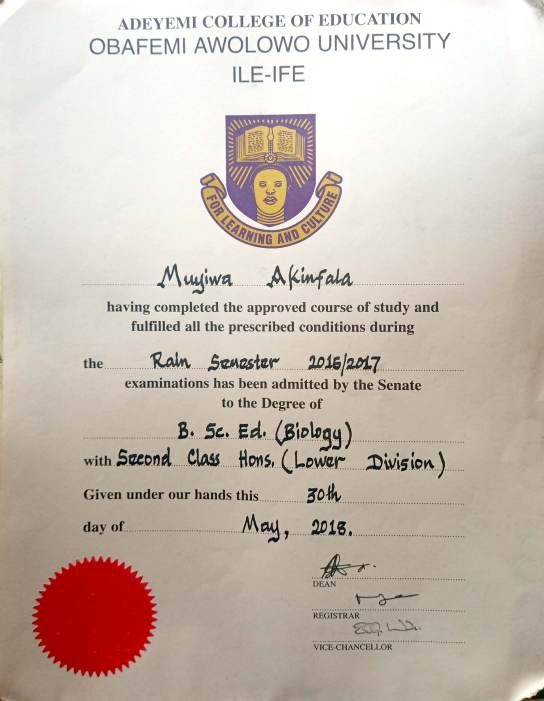 ADEYEMI COLLEGE OF EDUCATION
OBAFEMI AWOLOWO UNIVERSITY
ILE-IFE
FOR LEARNING AND CULTURE
Muyiwa Akinfala
having completed the approved course of study and
fulfilled all the prescribed conditions during
the Rain Semester 2016/2017
examinations has been admitted by the Senate
to the Degree of
B. Sc. Ed. (Biology)
with Second Class Hons. (Lower Division)
Given under our hands this 30th
day of May, 2018.
DEAN
REGISTRAR
VICE-CHANCELLOR